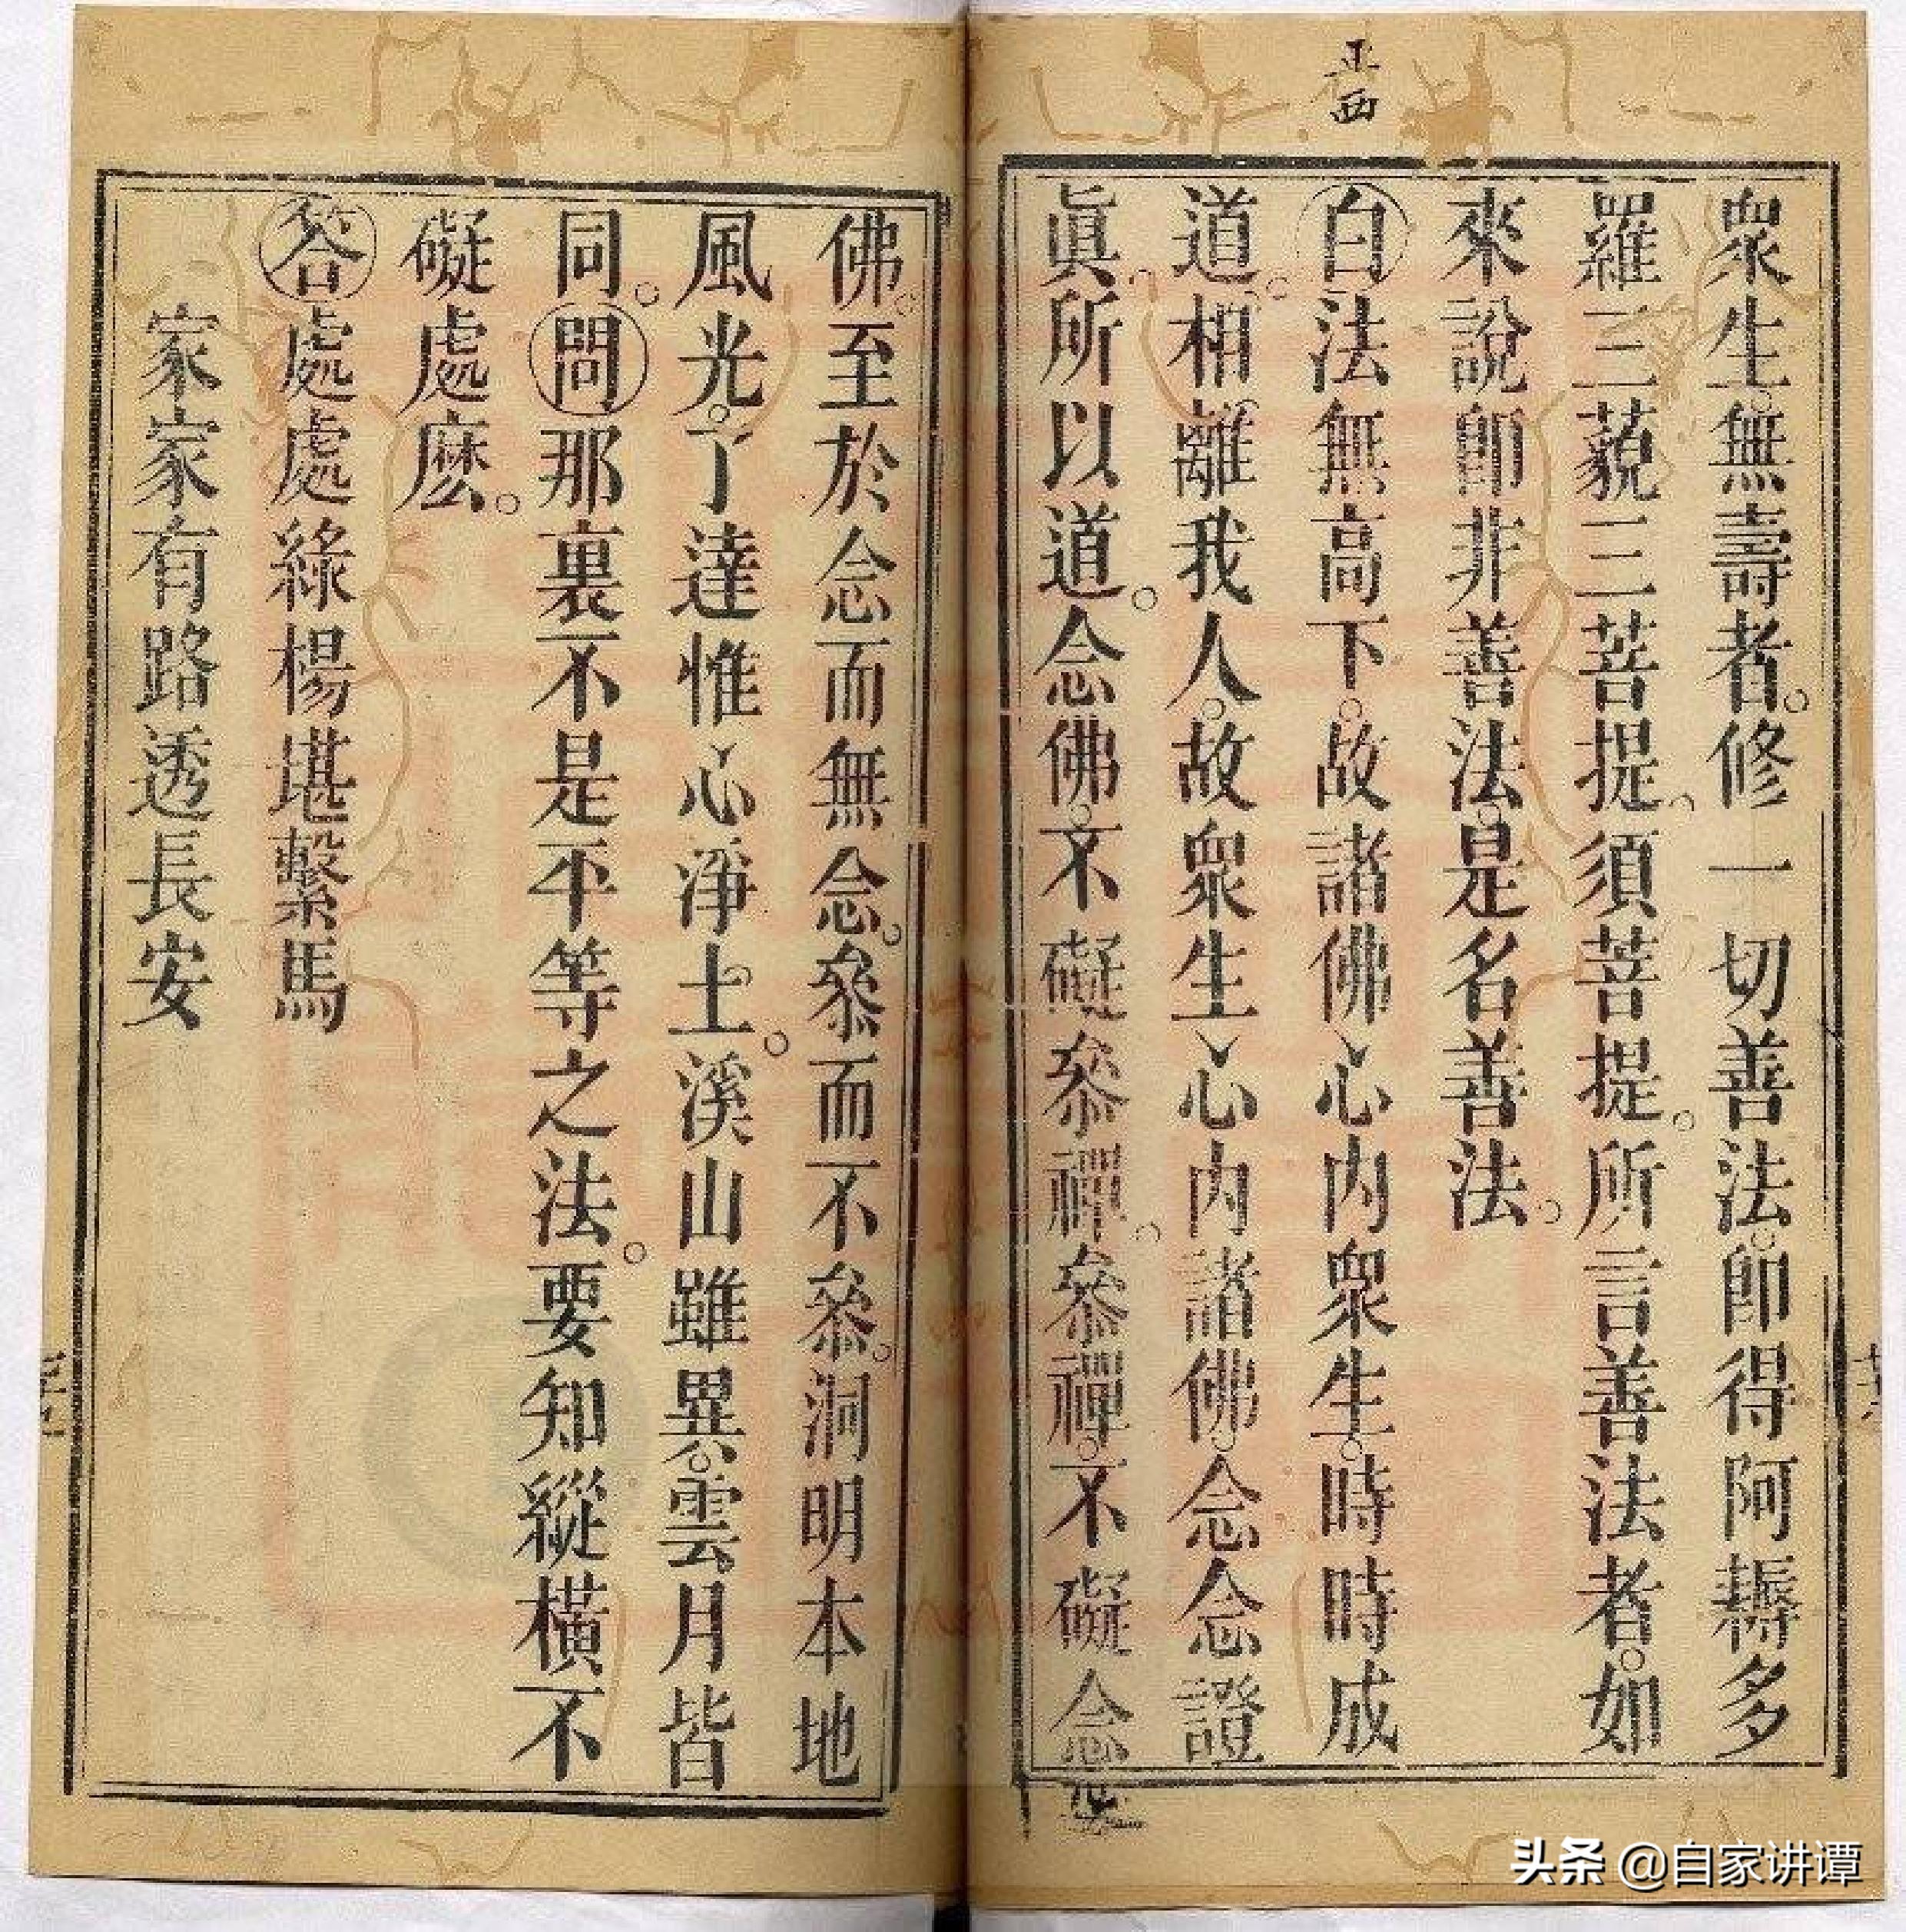 正
西
眾生。無壽者。修一切善法。即得阿耨多
羅三藐三菩提。須菩提。所言善法者。如
來說即非善法。是名善法。
白法無高下。故諸佛心內眾生。時時成
道。相離我人。故眾生心內諸佛。念念證
眞。所以道。念佛。不礙參禪。參禪。不礙念
佛。至於念而無念。參而不參。洞明本地
風光。了達惟心淨土。溪山雖異。雲月皆
同。問那裏不是平等之法。要知縱橫不
礙處麽。
答處處綠楊堪繫馬
家家有路透長安
头条 @自家讲谭